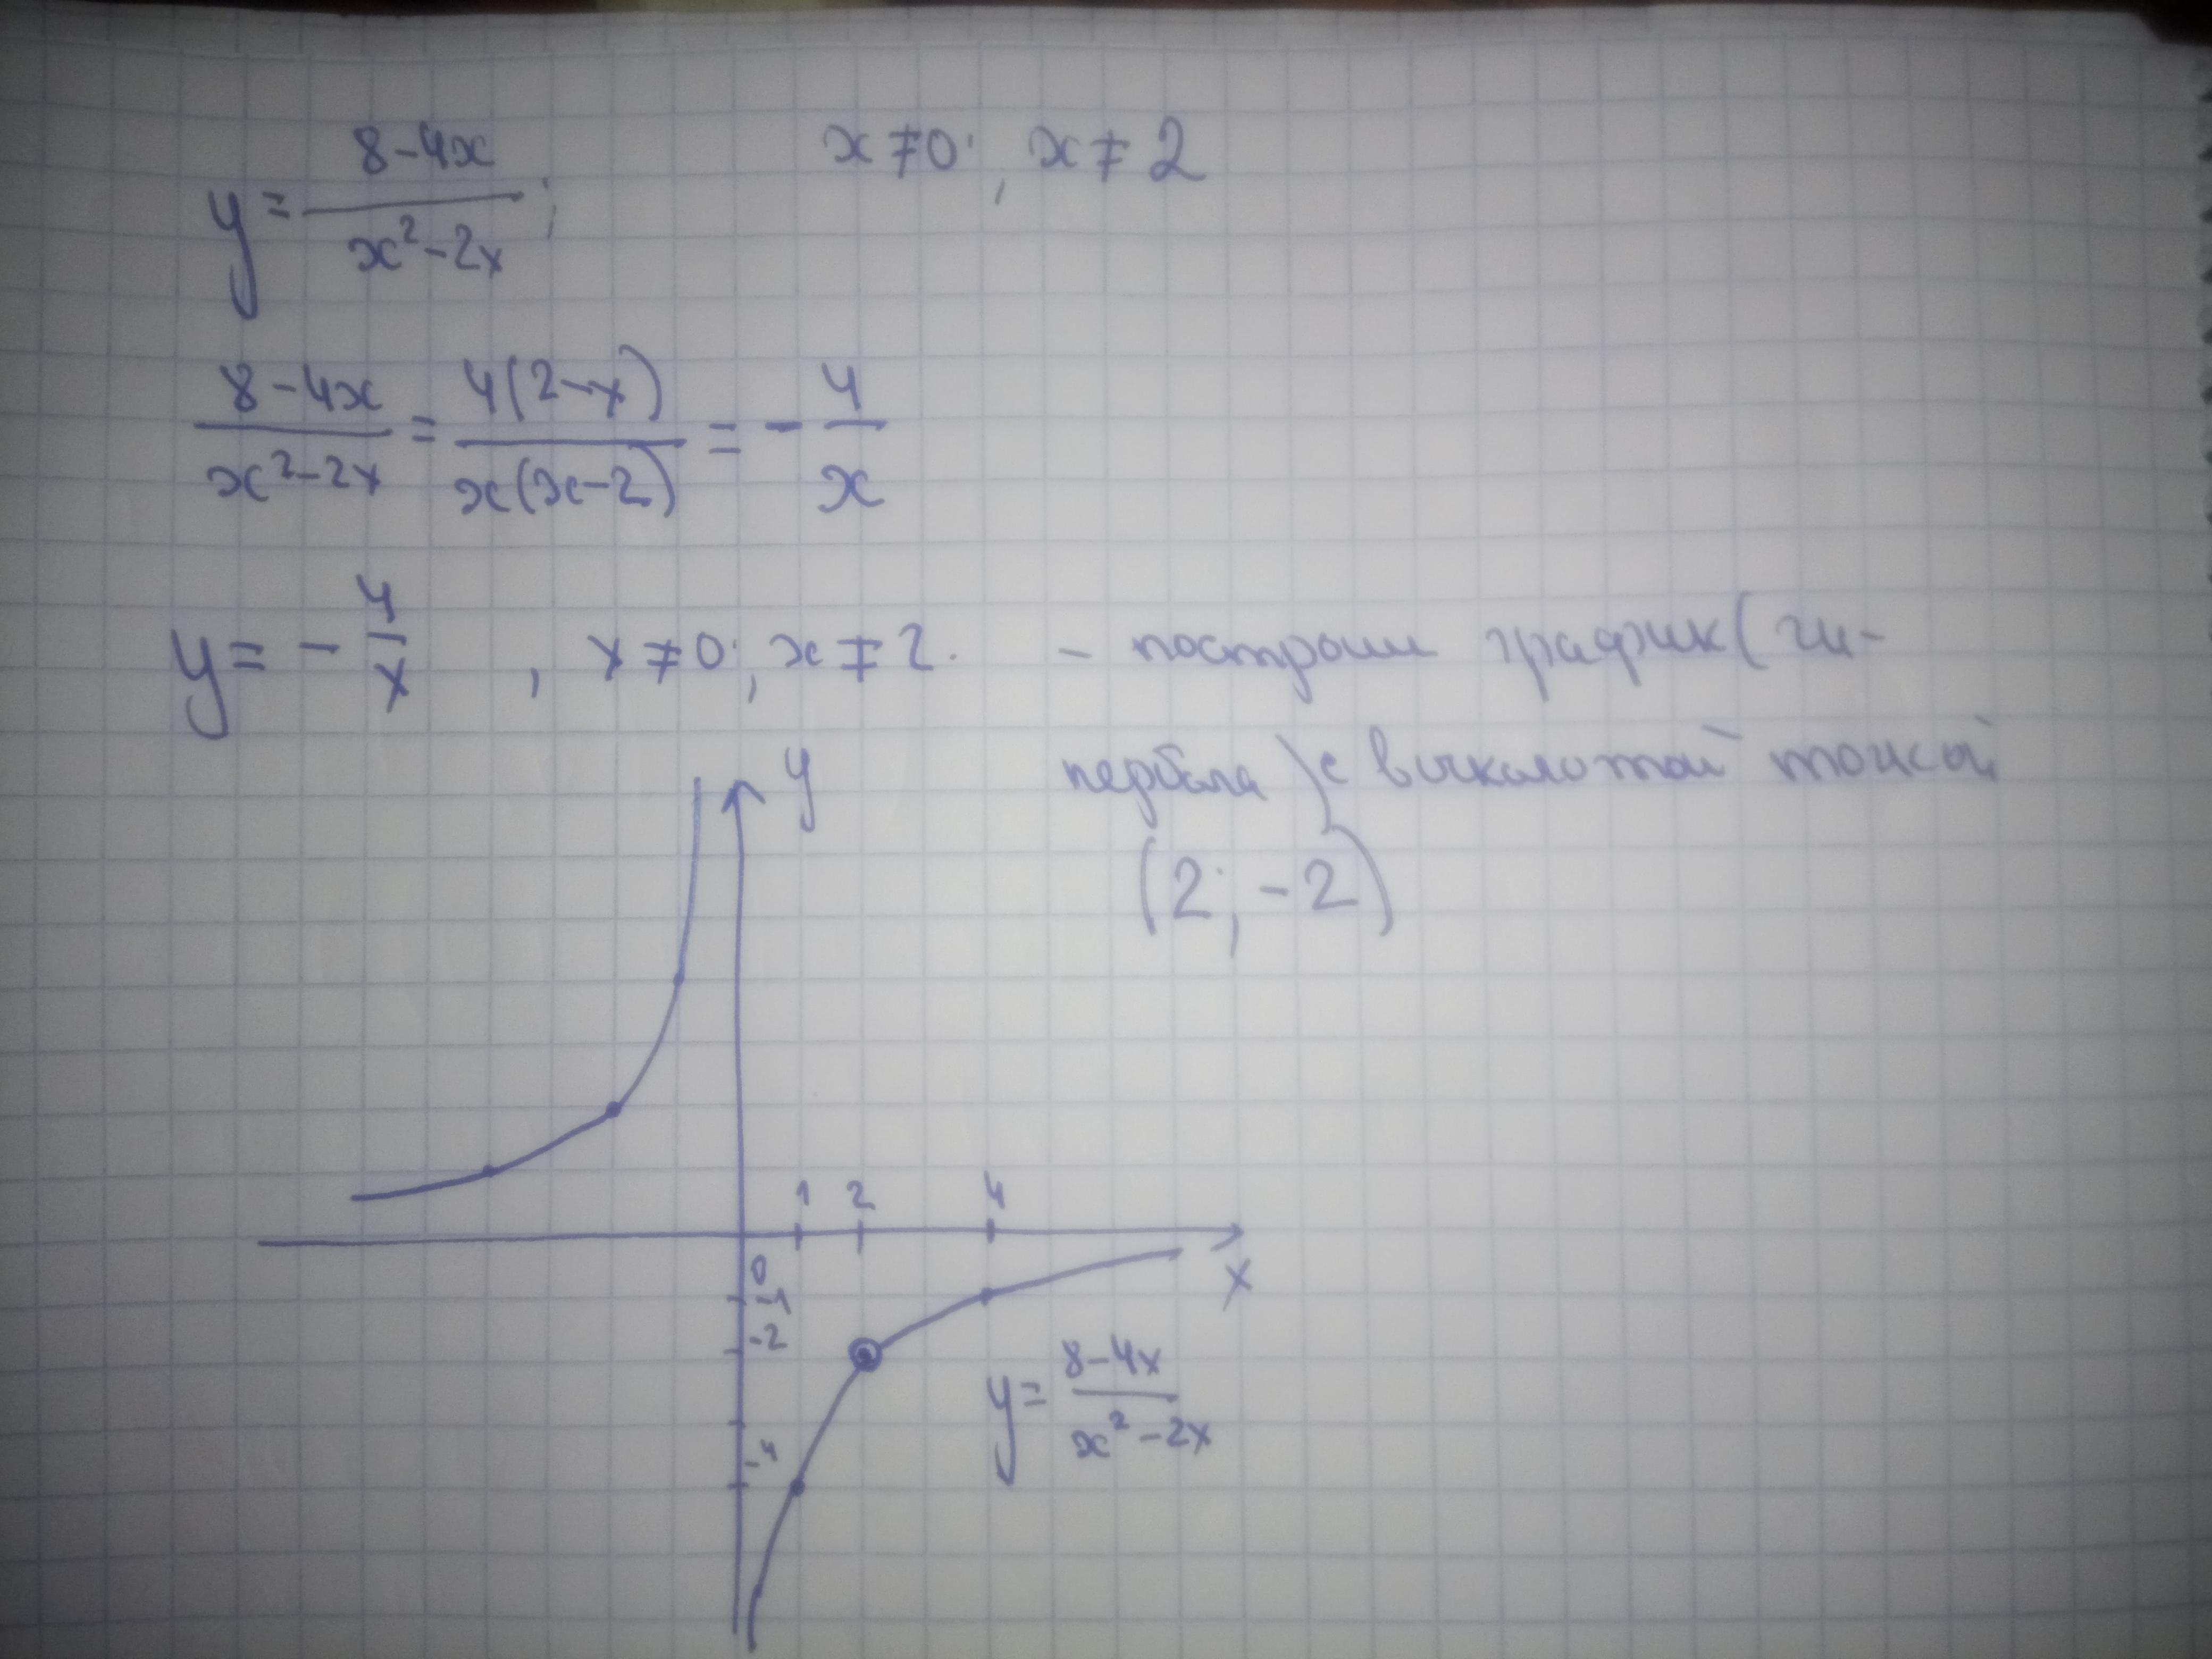 y = (8-4x)/(x²-2x); x≠0; x≠2
(8-4x)/(x²-2x) = 4(2-x)/(x(x-2)) = -4/x
y = -4/x, x≠0; x≠2. - построим график (ги-
пербола) с выколотой точкой
(2; -2)
y
1 2 4
0
x
-1
-2
y = (8-4x)/(x²-2x)
-4